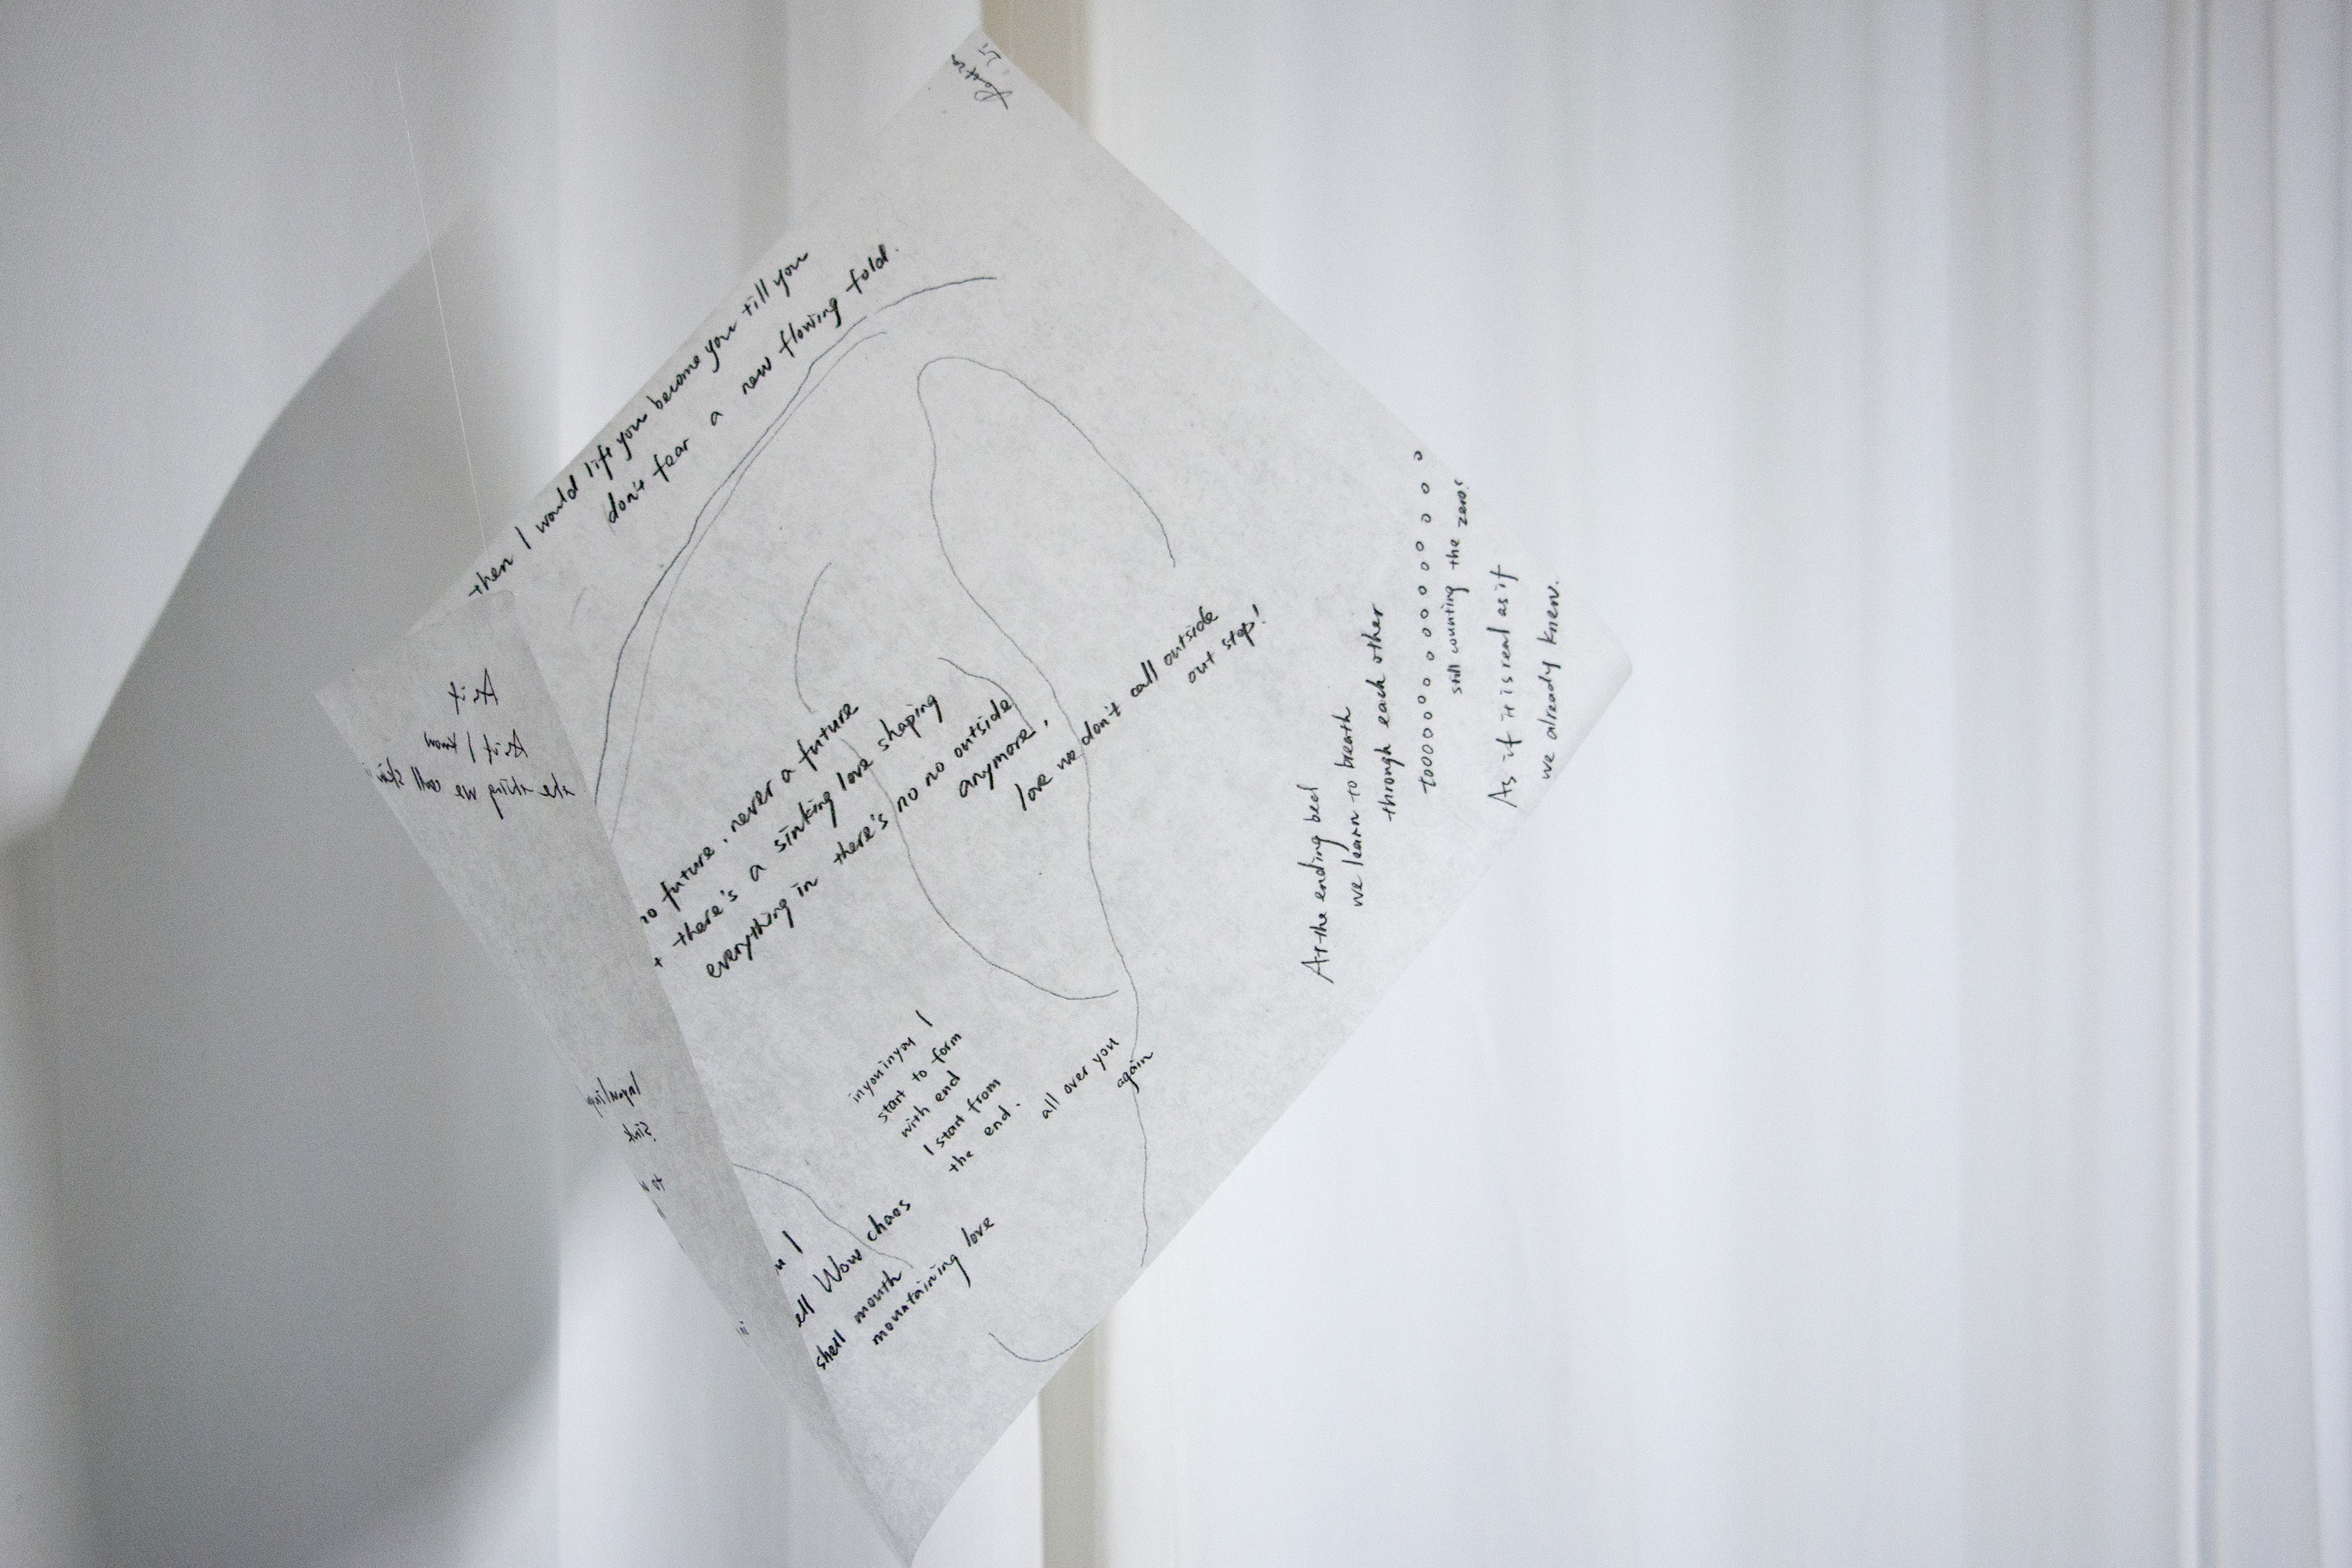 then I would lift you become you till you
don't fear a new flowing fold.
As if
As if I know
the thing we call
no future. never a future
there's a sinking love shaping
everything in there's no no outside
anymore,
love we don't call outside
out step!
At the ending bed
we learn to breath
through each other
still counting the zero!
As if it is real as if
we already knew.
inyouinyou I
start to form
with end
I start from
the end.
all over you
again
sink
to
I
Wow chaos
shell mouth
mountaining love